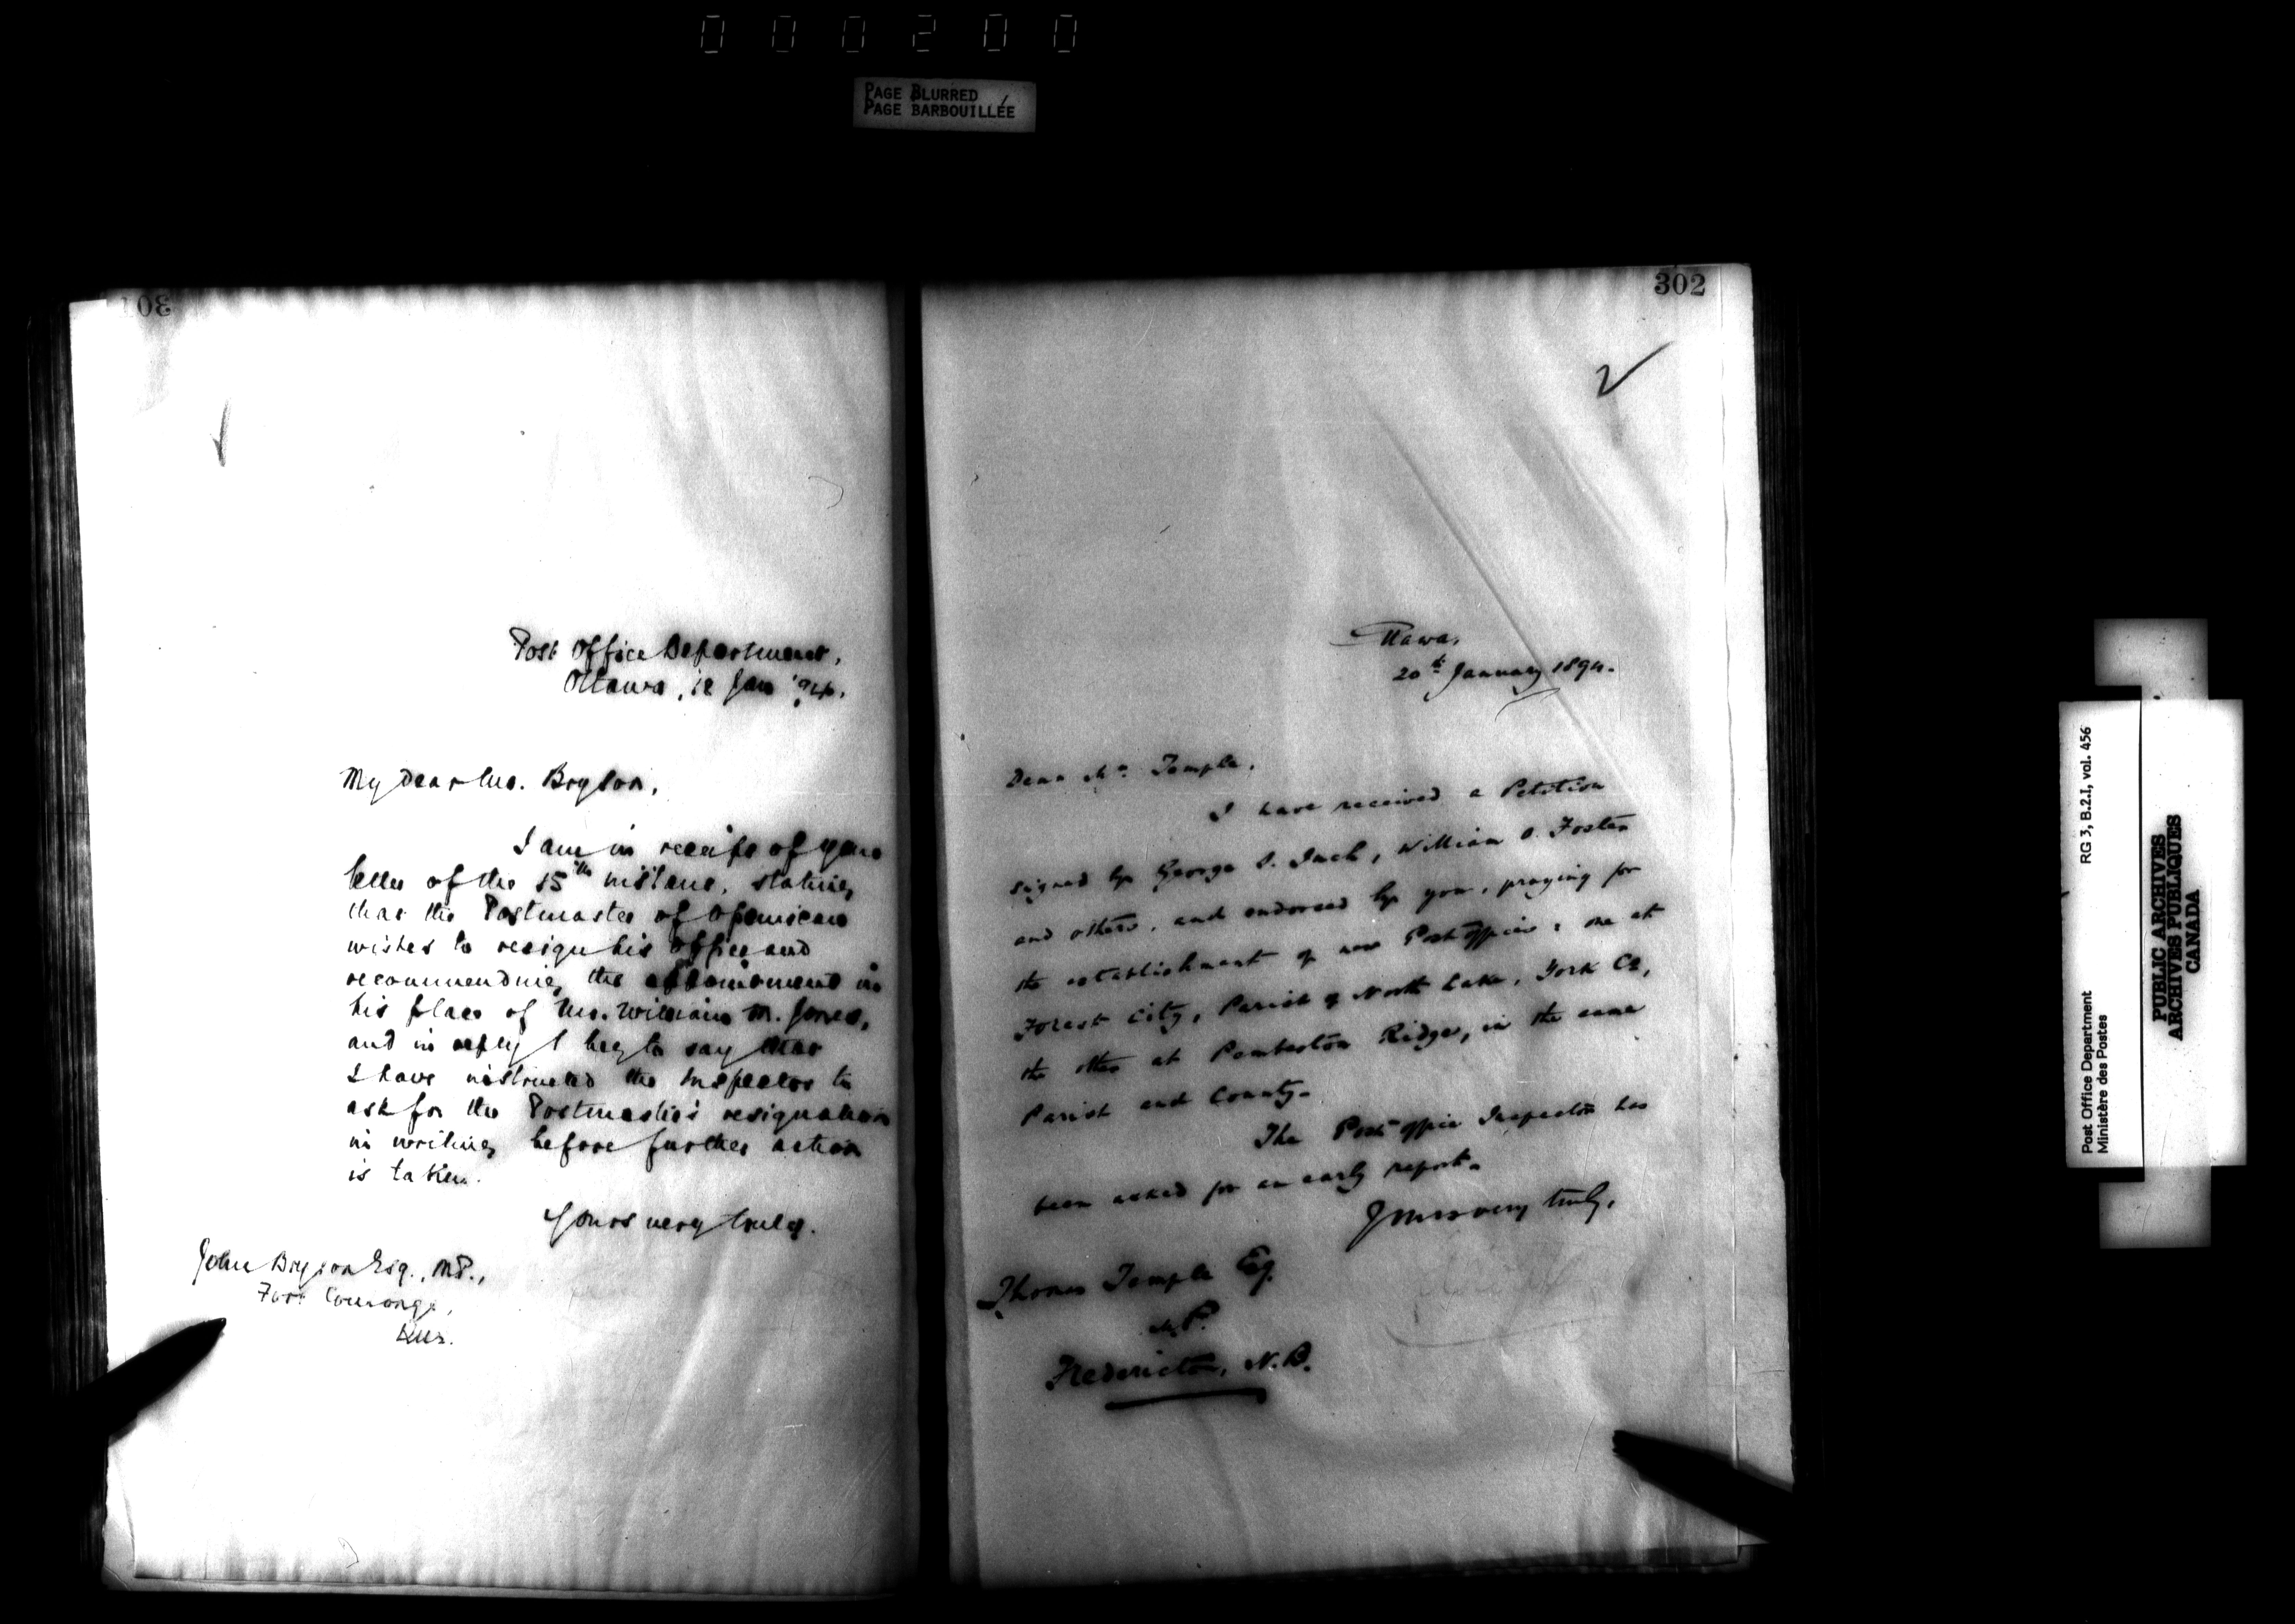 000200
PAGE BLURRED
PAGE BARBOUILLÉE
301
Post Office Department,
Ottawa, 18 Jan '94.
My dear Mr. Bryson,
I am in receipt of your
letter of the 15th instant, stating
that the Postmaster of
wishes to resign his office and
recommending the appointment in
his place of Mr. William M. Jones,
and in reply I beg to say that
I have instructed the Inspector to
ask for the Postmaster's resignation
in writing before further action
is taken.
Yours very truly.
John Bryson Esq., M.P.,
Fort Coulonge,
Que.
302
2
Ottawa,
20th January 1894.
Dear Mr. Temple,
I have received a Petition
signed by George S. Inch, William O. Foster
and others, and endorsed by you, praying for
the establishment of new Post offices: one at
Forest City, Parish of North Lake, York Co,
the other at Pemberton Ridge, in the same
Parish and County.
The Post office Inspector has
been asked for an early report.
Yours very truly,
Thomas Temple Esq.
M.P.
Fredericton, N.B.
Post Office Department RG 3, B.2.I, vol. 456
Ministère des Postes
PUBLIC ARCHIVES
ARCHIVES PUBLIQUES
CANADA